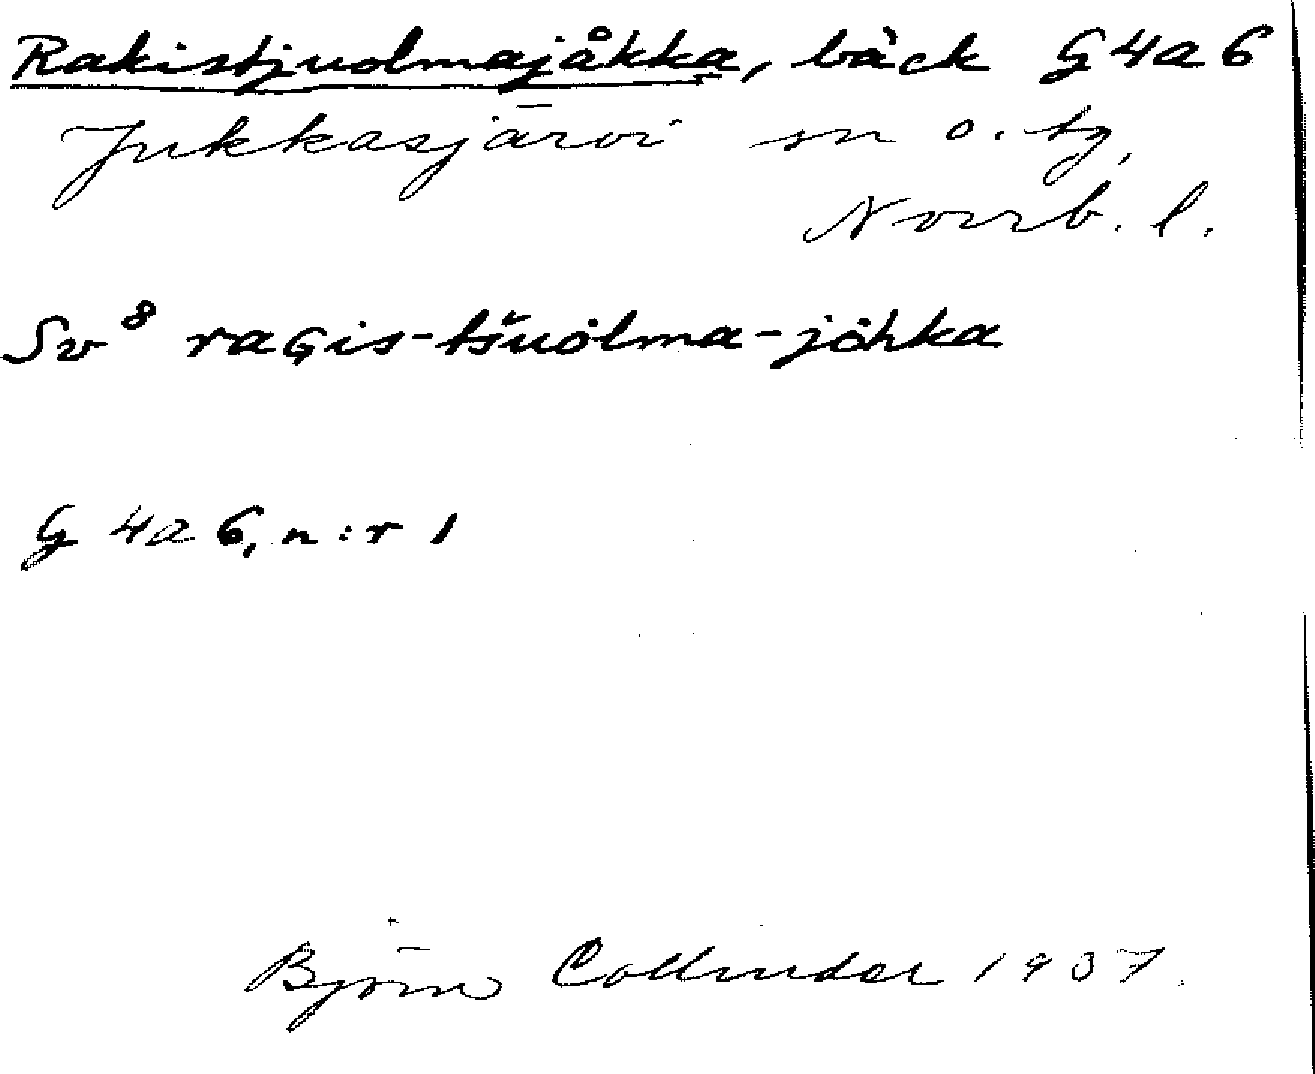 Rakistjuolmajåkka, bäck G 4a 6
Jukkasjärvi sn o. tg,
Norrb. l.
Sv⁸ raGis-tšuolma-johka
G 4a 6, n:r 1
Björn Collinder 1937.